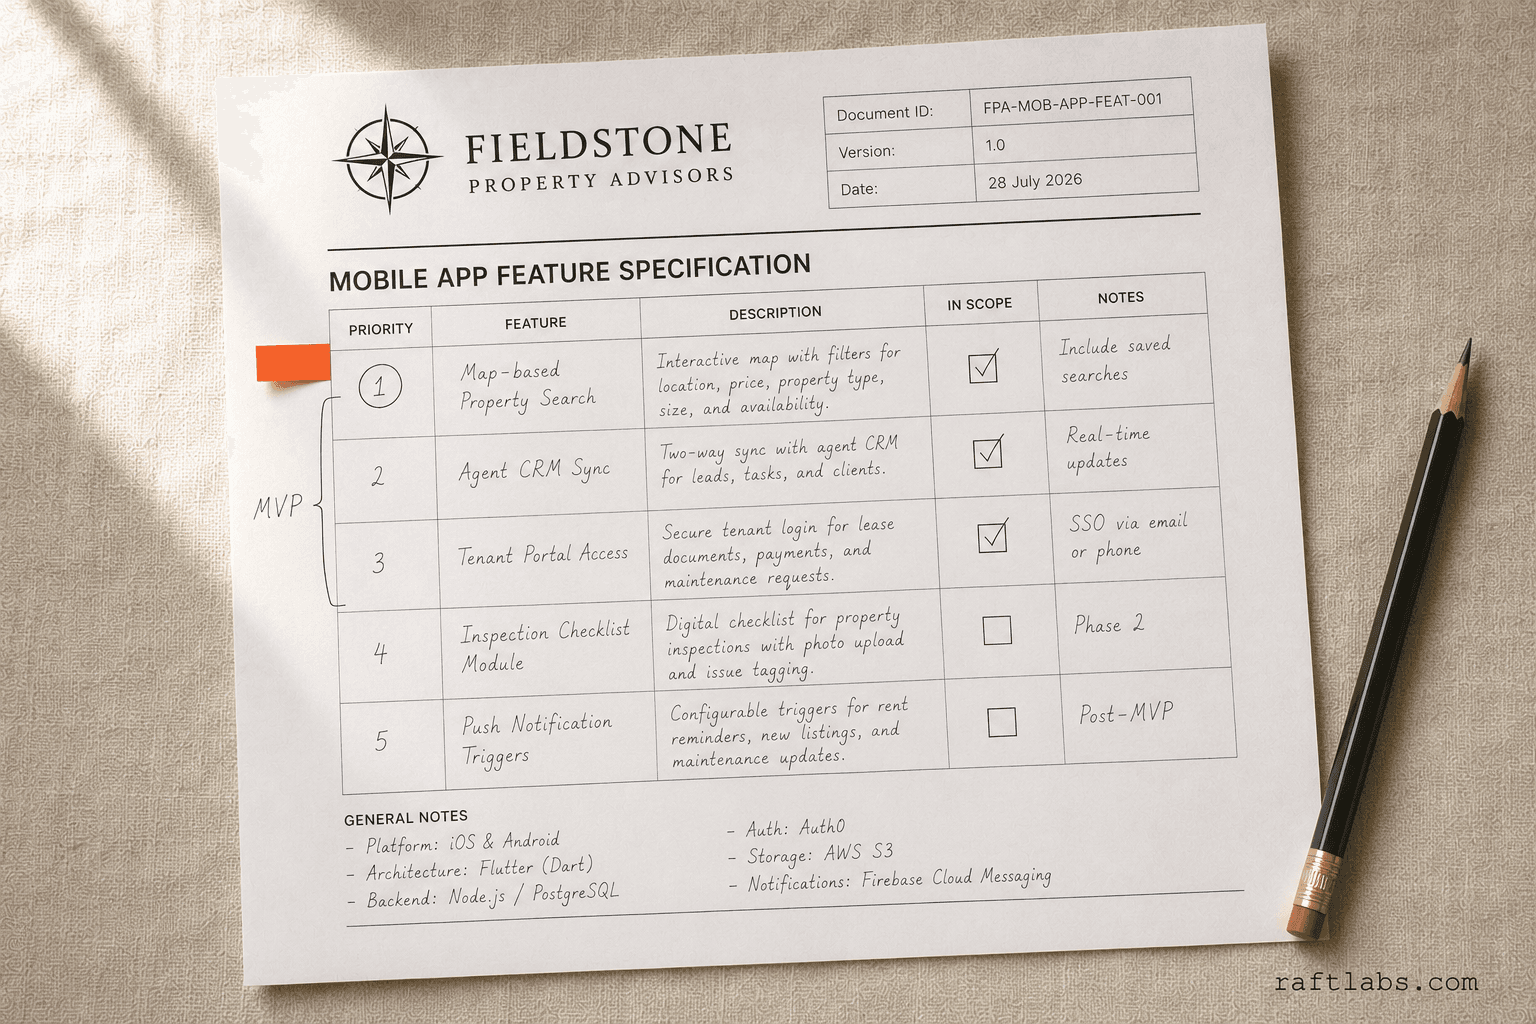 FIELDSTONE
PROPERTY ADVISORS
Document ID: FPA-MOB-APP-FEAT-001
Version: 1.0
Date: 28 July 2026
MOBILE APP FEATURE SPECIFICATION
PRIORITY FEATURE DESCRIPTION IN SCOPE NOTES
1
Map-based
Property Search
Interactive map with filters for
location, price, property type,
size, and availability.
Include saved
searches
2
Agent CRM Sync
Two-way sync with agent CRM
for leads, tasks, and clients.
Real-time
updates
MVP
3
Tenant Portal Access
Secure tenant login for lease
documents, payments, and
maintenance requests.
SSO via email
or phone
4
Inspection Checklist
Module
Digital checklist for property
inspections with photo upload
and issue tagging.
Phase 2
5
Push Notification
Triggers
Configurable triggers for rent
reminders, new listings, and
maintenance updates.
Post-MVP
GENERAL NOTES
- Platform: iOS & Android
- Architecture: Flutter (Dart)
- Backend: Node.js / PostgreSQL
- Auth: Auth0
- Storage: AWS S3
- Notifications: Firebase Cloud Messaging
raftlabs.com